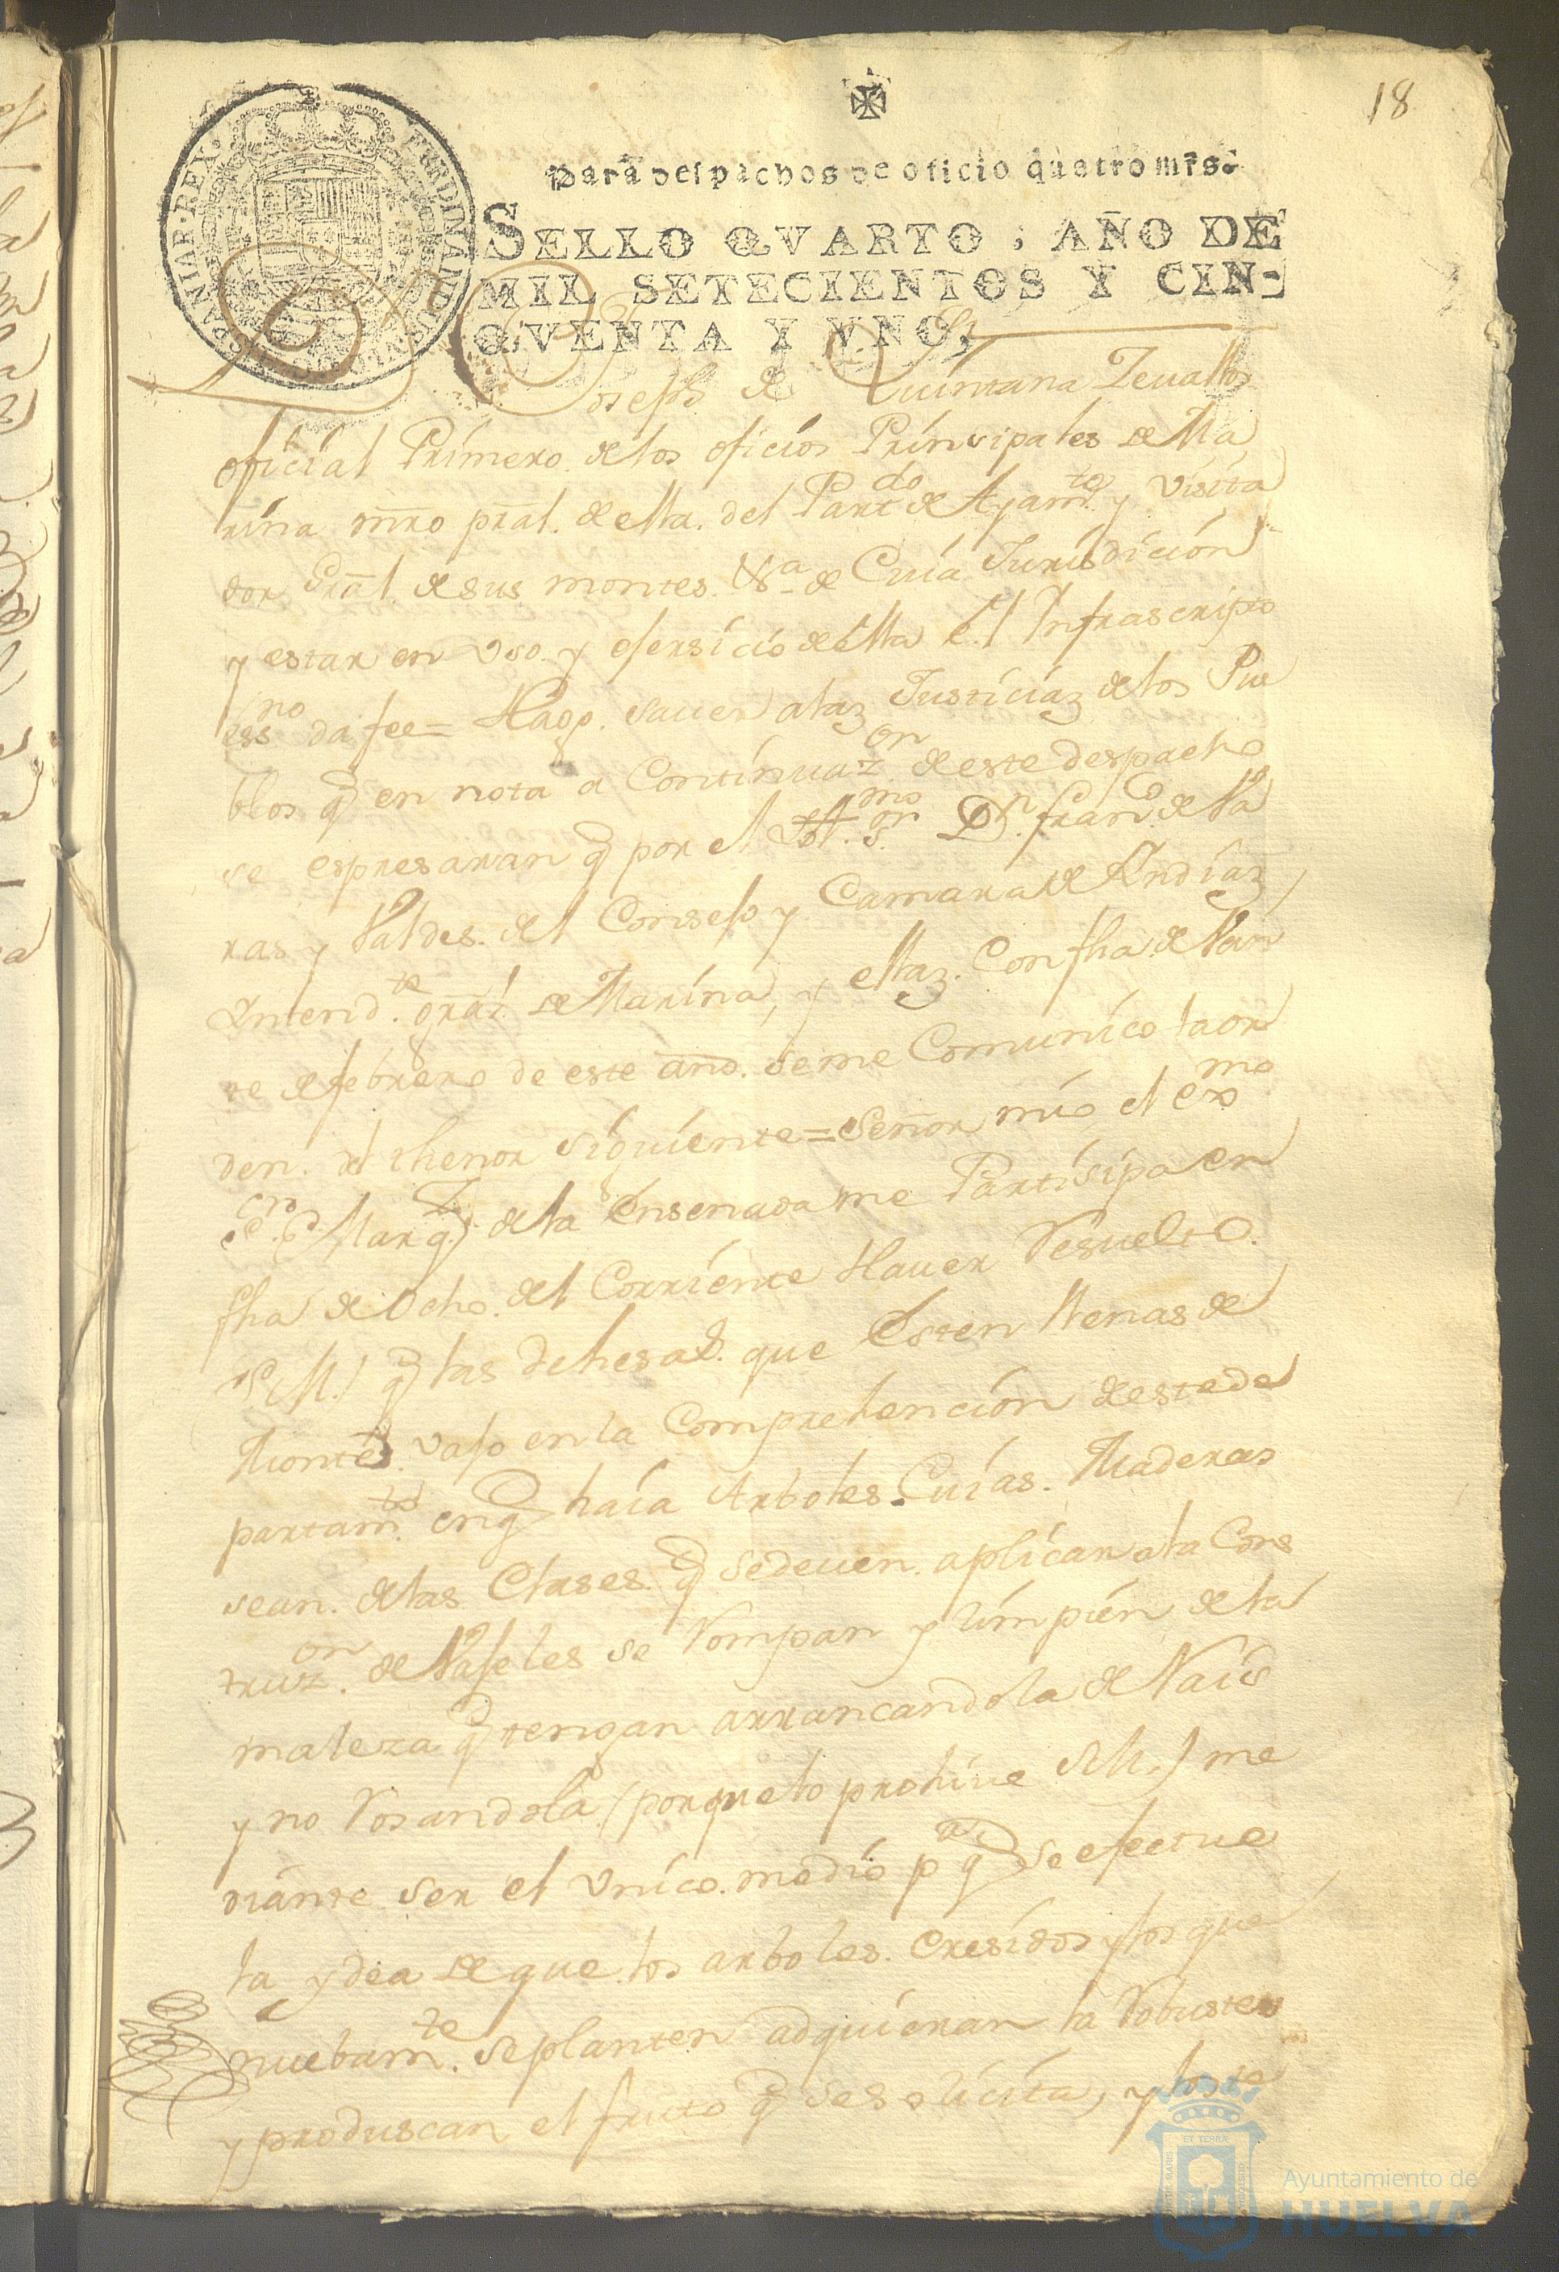 18
Para despachos de oficio quatro mrs.
SELLO QVARTO, AÑO DE
MIL SETECIENTOS Y CIN-
QVENTA Y VNO,
FERDINANDUS VI D G HISPANIAR REX
Dn Joseph de Quintana Zevallos
oficial Primero de los oficios Prinsipales de Ma
rina mrō prāl. de ella del Partdo de Ayamte y visita
dor Grāl. de sus montes &a de Cuia Jurisdicion
y estar en vso y efersicio de ella el Infrascripto
essno da fee = Hago saver a las Justicias de los Pue
blos q en nota a Continuazon de este despacho
se espresaran q por el Illmo Sor Dn franco de Va
ras y Valdes del Consejo y Camara de Yndias
Yntendte grāl. de Marina, y ellas Con fha de Vein
te de febrero de este año se me Comunico la or
den del thenor siguiente = Señor mio el exmo
Sor Marqs de la Ensenada me Partisipa en
fha de Ocho del Corriente Haver Resuelto
S. M. q las dehesas que Esten llenas de
Montes vajo en la Comprehencion de este de
partamto en q haia Arboles Cuias Maderas
sean de las Clases q se deven aplicar a la Cons
truzon de Vajeles se Rompan y limpien de la
maleza q tengan arrancandola de Rais
y no Rosandola (porque lo prohive S M.) me
diante ser el vnico medio pa q se efectue
la ydea de que los arboles Cresidos y los que
nuebamte se planten adquieran la Robustes
y produscan el fruto q se solicita, y
ET TERRA
Ayuntamiento de
HUELVA